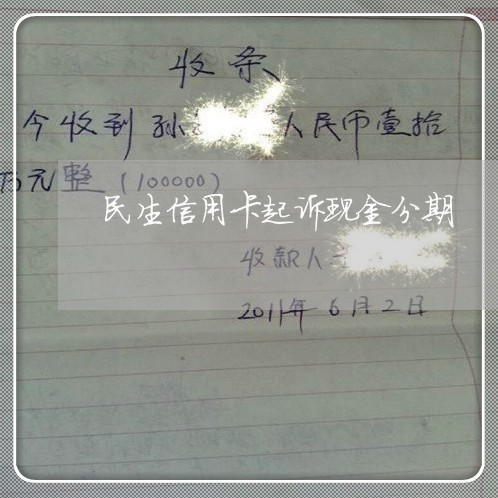 收条
今收到孙 人民币壹拾
万元整(100000)
民生信用卡起诉现金分期
收款人
2011年6月2日